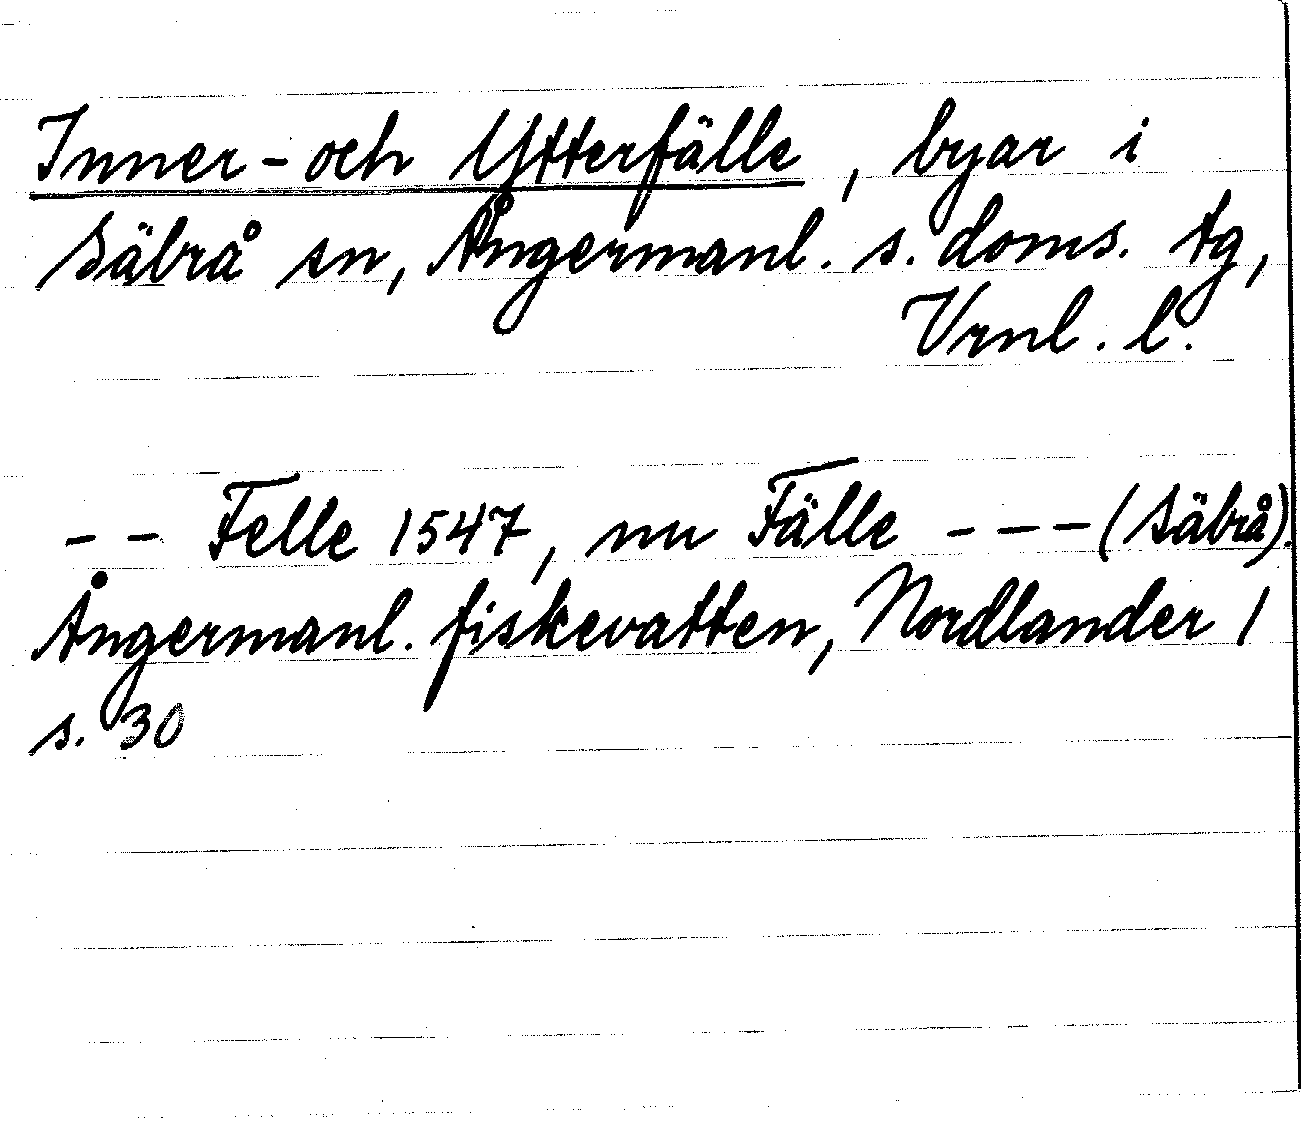 Inner- och Ytterfälle, byar i
Säbrå sn, Ångermanl. s. doms. tg,
Vrnl. l.
-- Felle 1547, nu Fälle --- (Säbrå).
Ångermanl. fiskevatten, Nordlander 1
s. 30